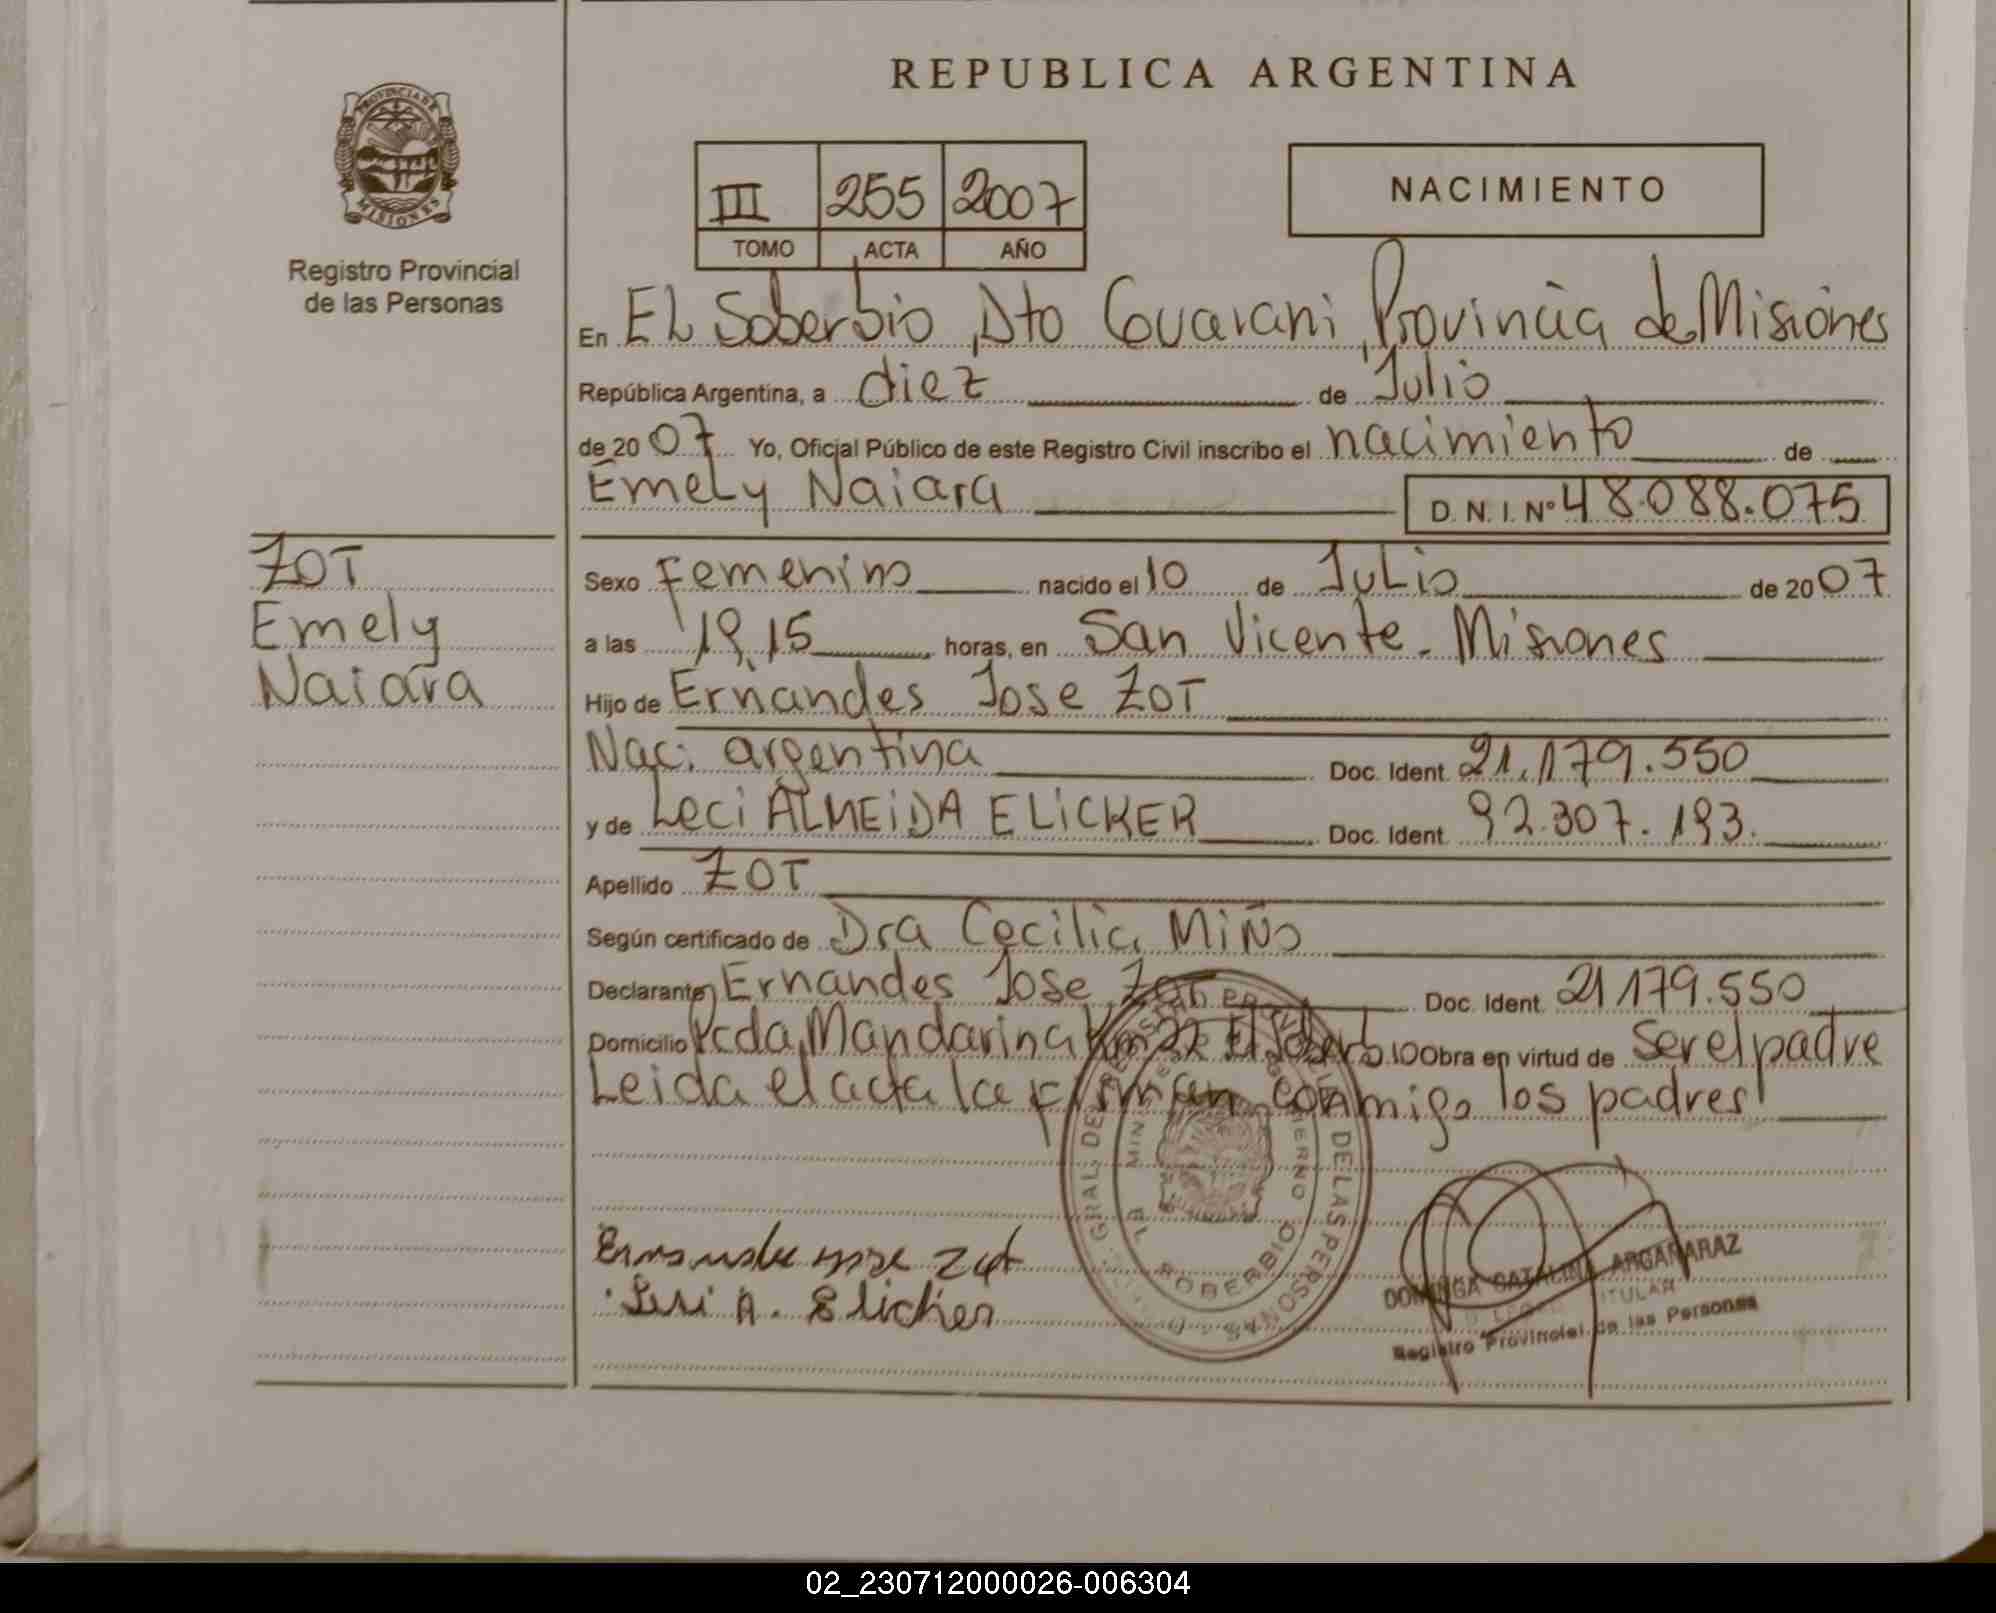 REPUBLICA ARGENTINA
PROVINCIA DE
MISIONES
Registro Provincial
de las Personas
III 255 2007
TOMO ACTA AÑO
NACIMIENTO
En EL Soberbio, Dto Guarani, Provincia de Misiones
República Argentina, a diez de Julio
de 2007 Yo, Oficial Público de este Registro Civil inscribo el nacimiento de
Emely Naiara D.N.I. Nº 48.088.075
ZOT
Emely
Naiara
Sexo Femenino nacido el 10 de Julio de 2007
a las 19,15 horas, en San Vicente - Misiones
Hijo de Ernandes Jose ZOT
Nac: argentina Doc. Ident. 21.179.550
y de Leci ALMEIDA ELICKER Doc. Ident. 92.307.193.
Apellido ZOT
Según certificado de Dra Cecilia Miño
Declarante Ernandes Jose Zot Doc. Ident. 21179.550
Domicilio Pcda Mandarina Km 22 El Soberbio Obra en virtud de ser el padre
Leida el acta la firman conmigo los padres
GRAL. DE DE LAS PERSONAS
SOBERBIO
Zot
A. Elicker
DOMINGA CATALINA ARGAÑARAZ
TITULAR
Registro Provincial de las Personas
02_230712000026-006304